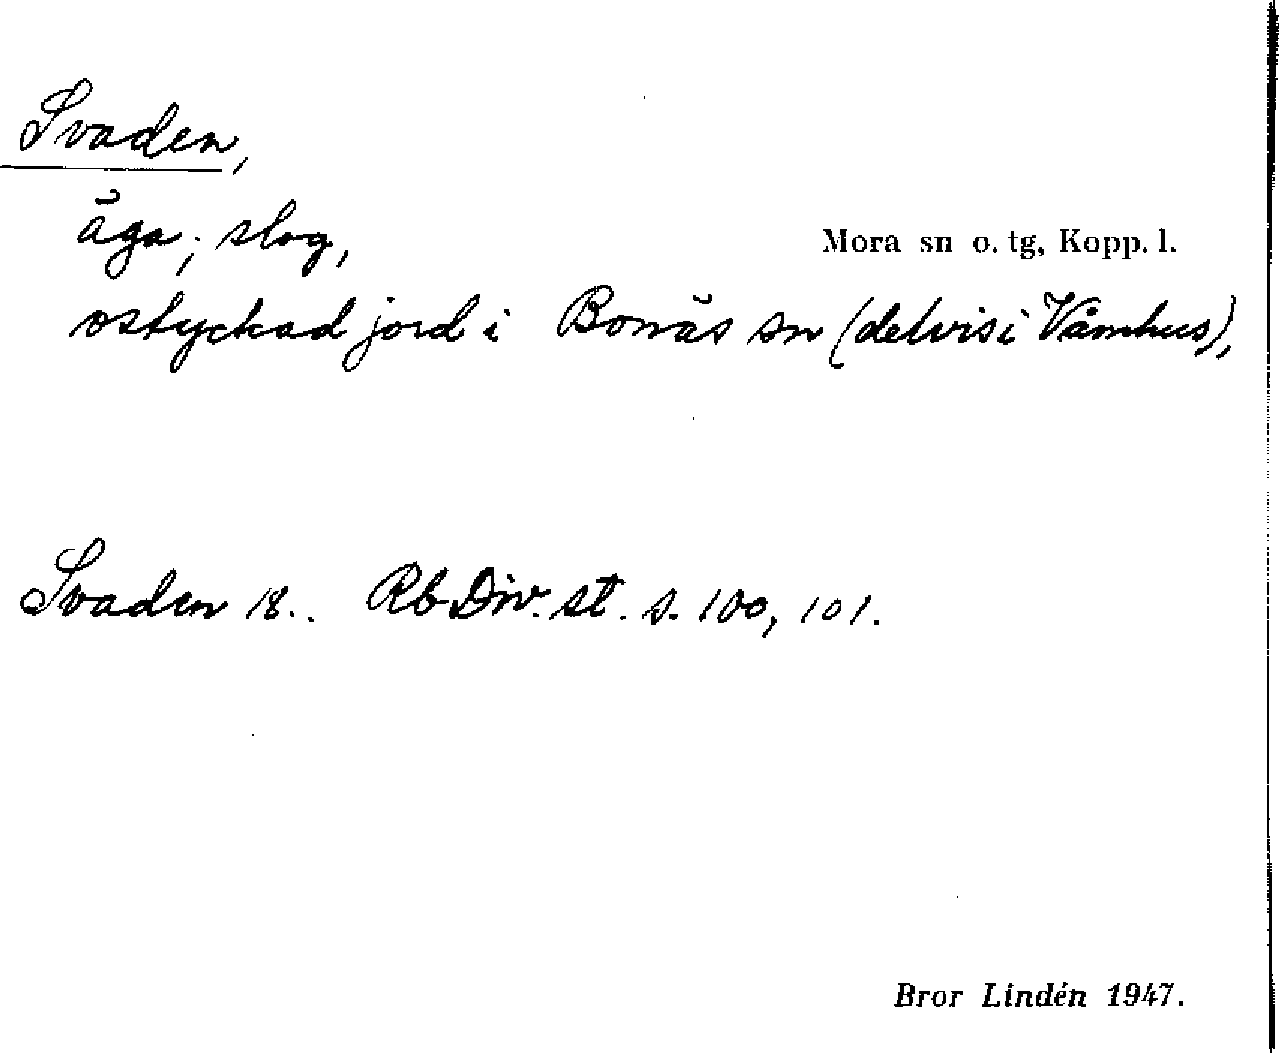 Svaden,
äga; slog,
Mora sn o. tg, Kopp. l.
ostyckad jord i Bonäs sn (delvis i Våmhus),
Svaden 18.. Rb Div. st. s. 100, 101.
Bror Lindén 1947.